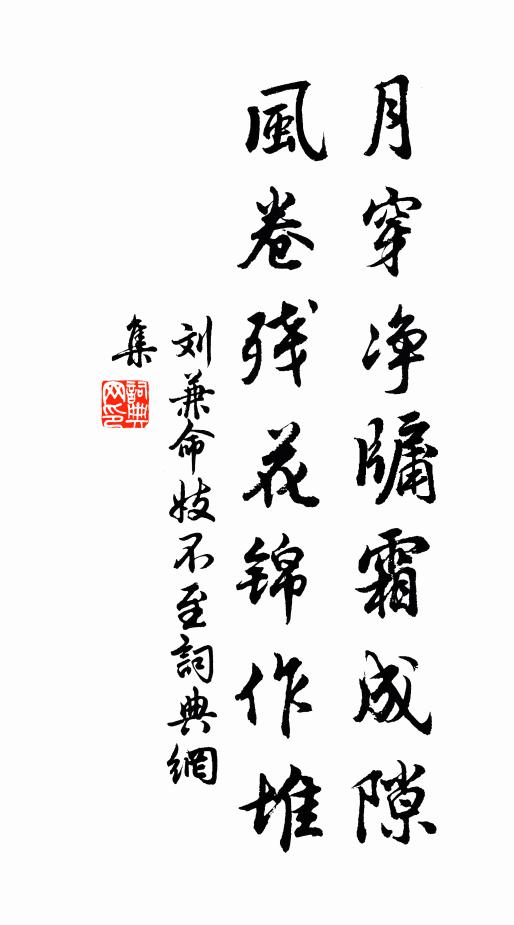 月穿净牖霜成隙
風卷残花錦作堆
刘兼命妓不至詞典網
集
詞典
网印